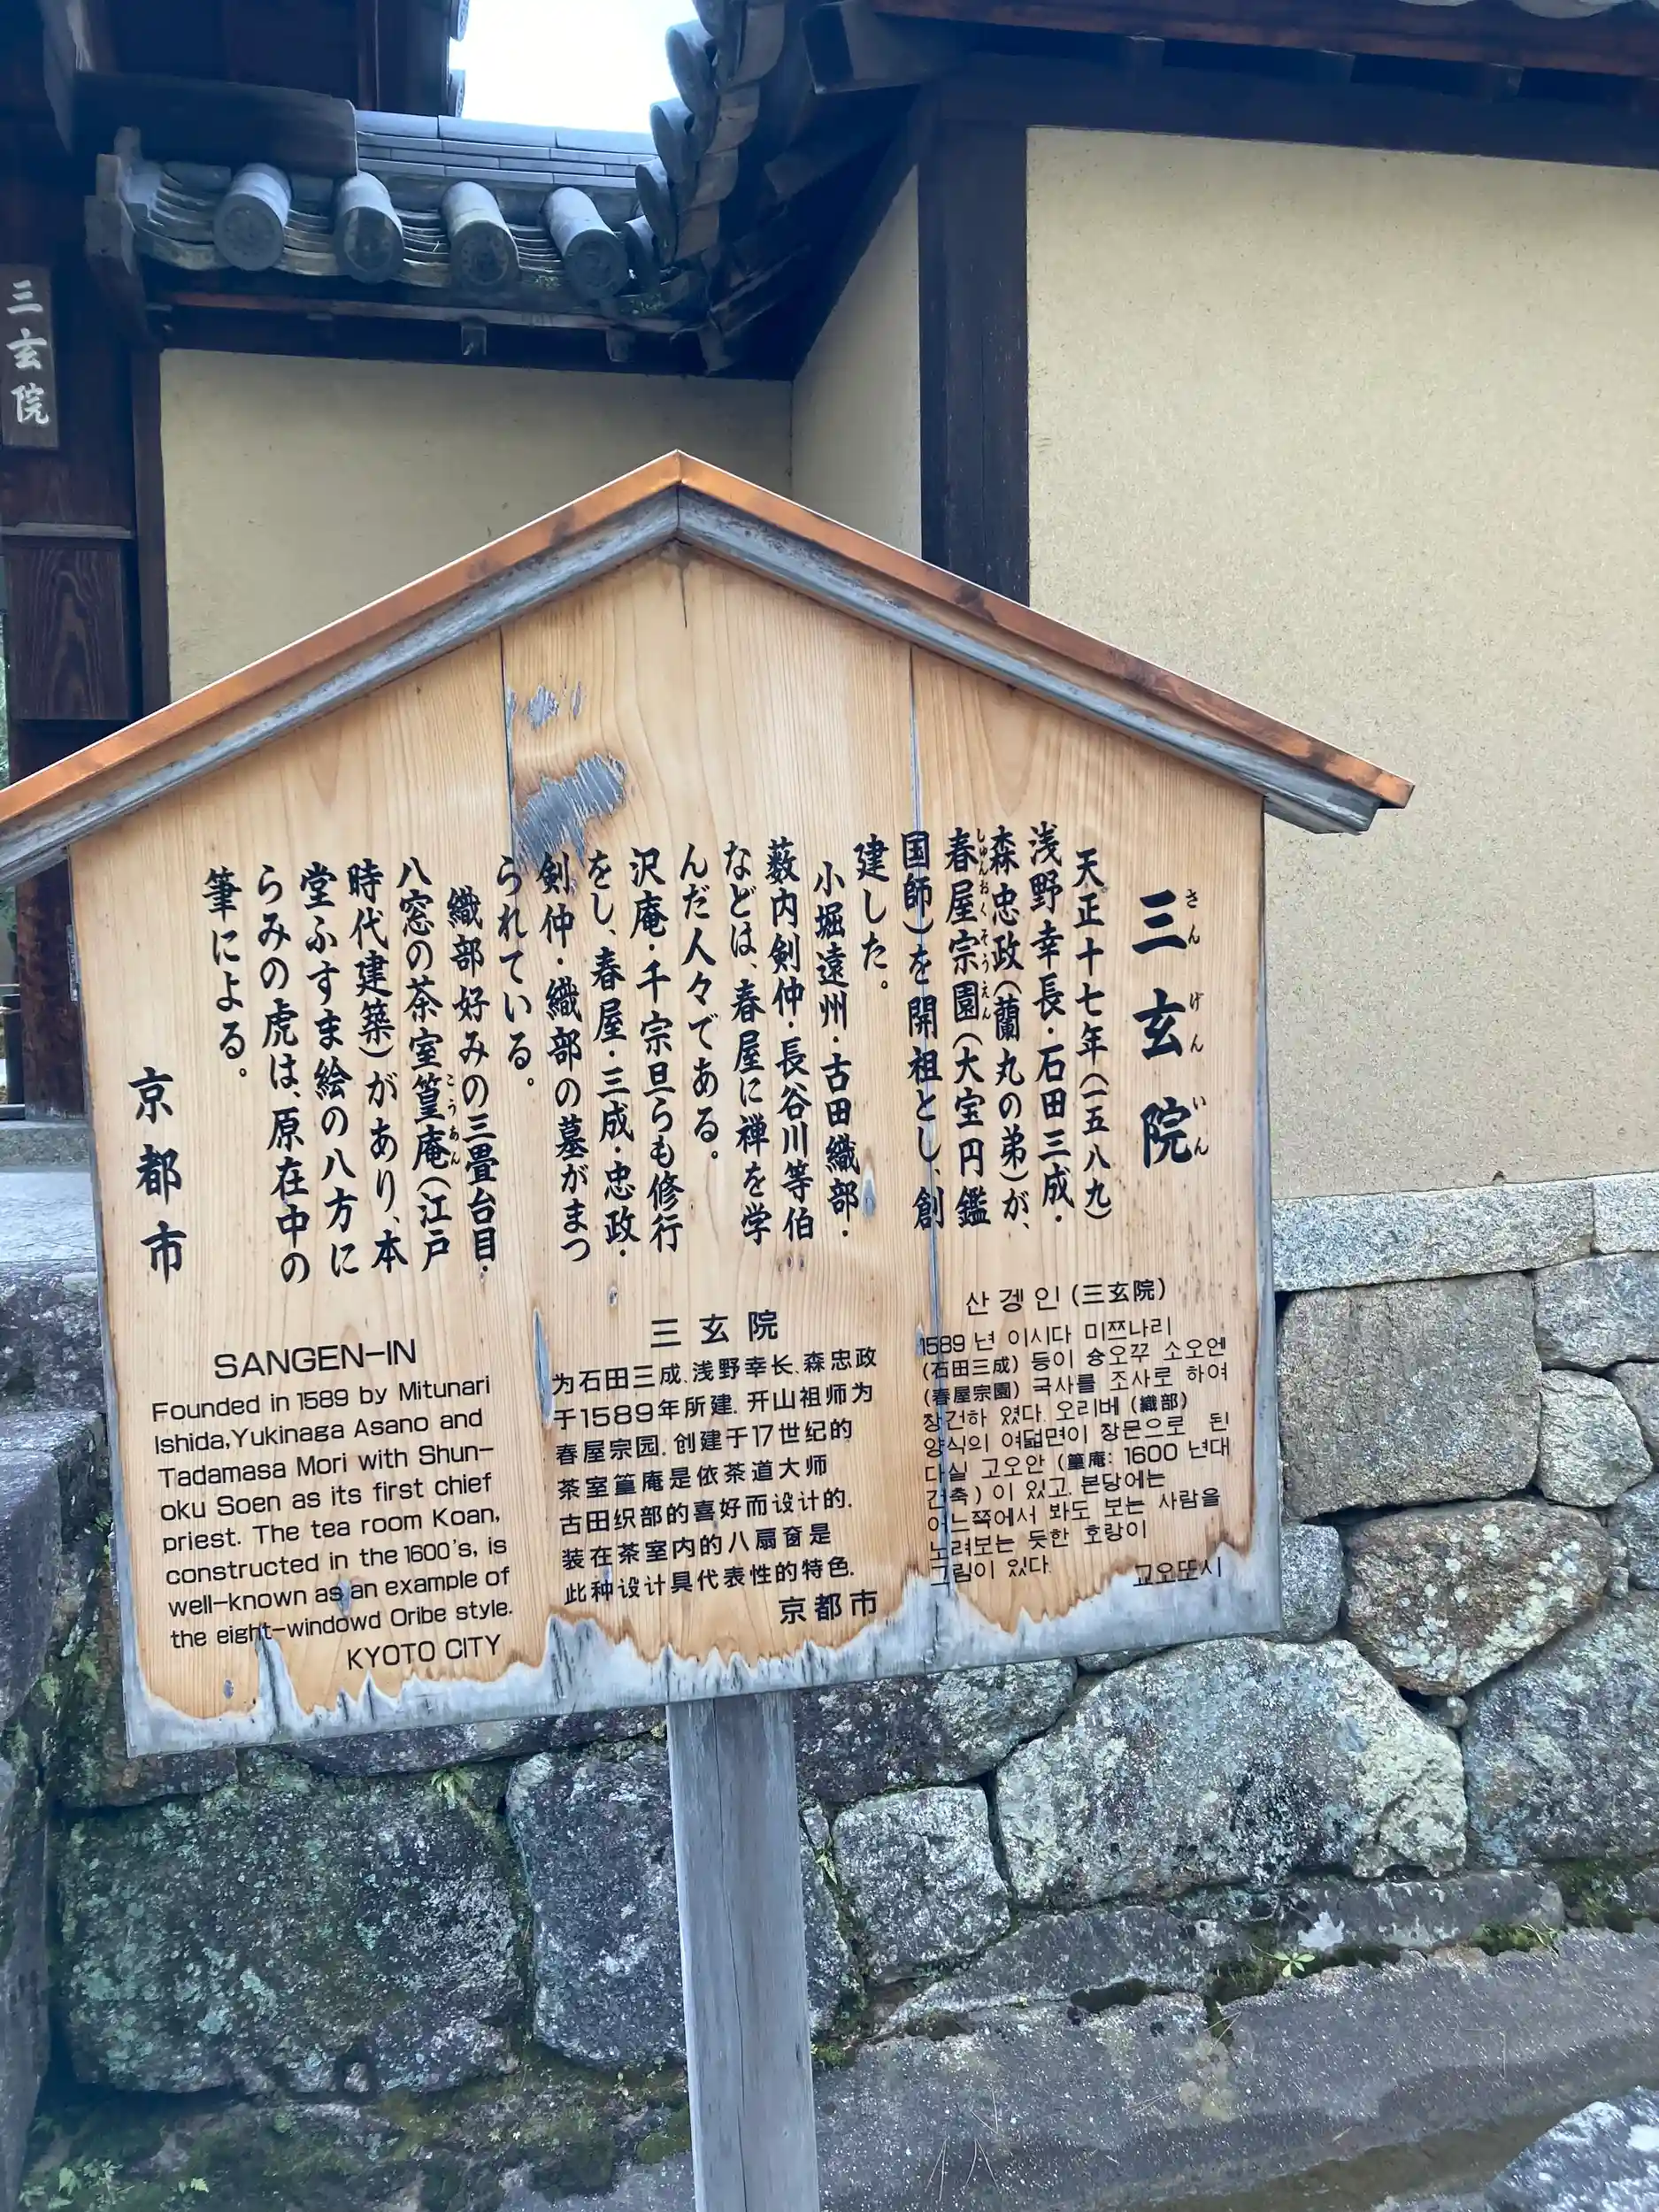 三玄院
三玄院
さんげんいん
天正十七年(一五八九)
浅野幸長・石田三成・
森忠政(蘭丸の弟)が、
春屋宗園(大宝円鑑
しゅんおくそうえん
国師)を開祖とし、創
建した。
小堀遠州・古田織部・
薮内剣仲・長谷川等伯
などは、春屋に禅を学
んだ人々である。
沢庵・千宗旦らも修行
をし、春屋・三成・忠政・
剣仲・織部の墓がまつ
られている。
織部好みの三畳台目・
八窓の茶室篁庵(江戸
こうあん
時代建築)があり、本
堂ふすま絵の八方に
らみの虎は、原在中の
筆による。
京都市
SANGEN-IN
Founded in 1589 by Mitunari
Ishida,Yukinaga Asano and
Tadamasa Mori with Shun-
oku Soen as its first chief
priest. The tea room Koan,
constructed in the 1600's, is
well-known as an example of
the eight-windowd Oribe style.
KYOTO CITY
三玄院
为石田三成、浅野幸长、森忠政
于1589年所建. 开山祖师为
春屋宗园. 创建于17世纪的
茶室篁庵是依茶道大师
古田织部的喜好而设计的.
装在茶室内的八扇窗是
此种设计具代表性的特色.
京都市
산겡인 (三玄院)
1589 년 이시다 미쯔나리
(石田三成) 등이 슝오꾸 소오엔
(春屋宗園) 국사를 조사로 하여
창건하 였다. 오리베 (織部)
양식의 여덟면이 창문으로 된
다실 고오안 (篁庵: 1600 년대
건축) 이 있고, 본당에는
어느쪽에서 봐도 보는 사람을
노려보는 듯한 호랑이
그림이 있다.
교오또시